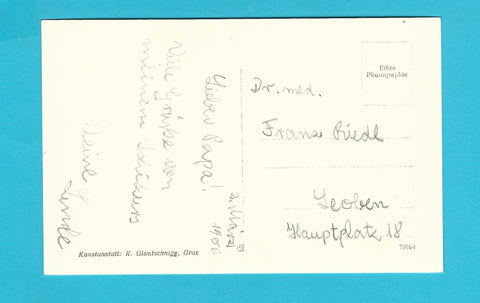 Lieber Papa!
Viele Grüße von
meinem Schikurs
Deine
Linde
2. März
Dr. med.
Franz Riedl
Leoben
Hauptplatz 18
Echte
Photographie
Kunstanstalt: K. Glantschnigg, Graz